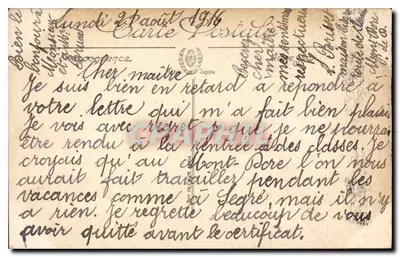 Lundi 21 août 1916
Carte Postale
Correspondance
Cher maître
Je suis bien en retard à répondre à
votre lettre qui m'a fait bien plaisir
Je vois avec regret que je ne pourrai
être rendu à la rentrée des classes. Je
croyais qu'au Mont-Dore l'on nous
aurait fait travailler pendant les
vacances comme à Segré, mais il n'y
a rien. Je regrette beaucoup de vous
avoir quitté avant le certificat.
Bien le
bonjour à
Monsieur